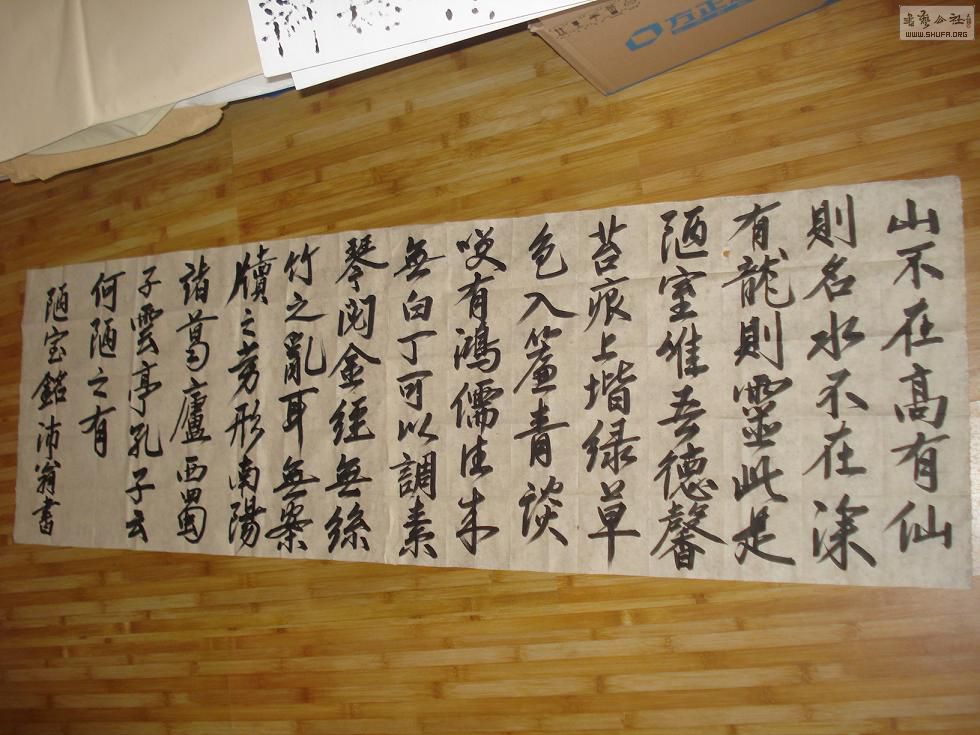 山不在高有仙
則名水不在深
有龍則靈此是
陋室惟吾德馨
苔痕上堦绿草
色入簾青談
咲有鴻儒往来
無白丁可以調素
琴閱金經無絲
竹之亂耳無案
牘之劳形南陽
諸葛廬西蜀
子雲亭孔子云
何陋之有
陋室銘 沛翁書
方正
書藝公社
WWW.SHUFA.ORG